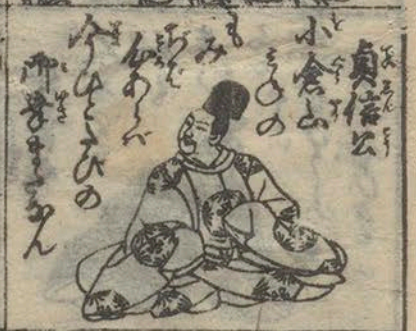 貞信公
小倉山
みねの
もみ
ぢば
心あらば
今ひとたびの
御幸またなん